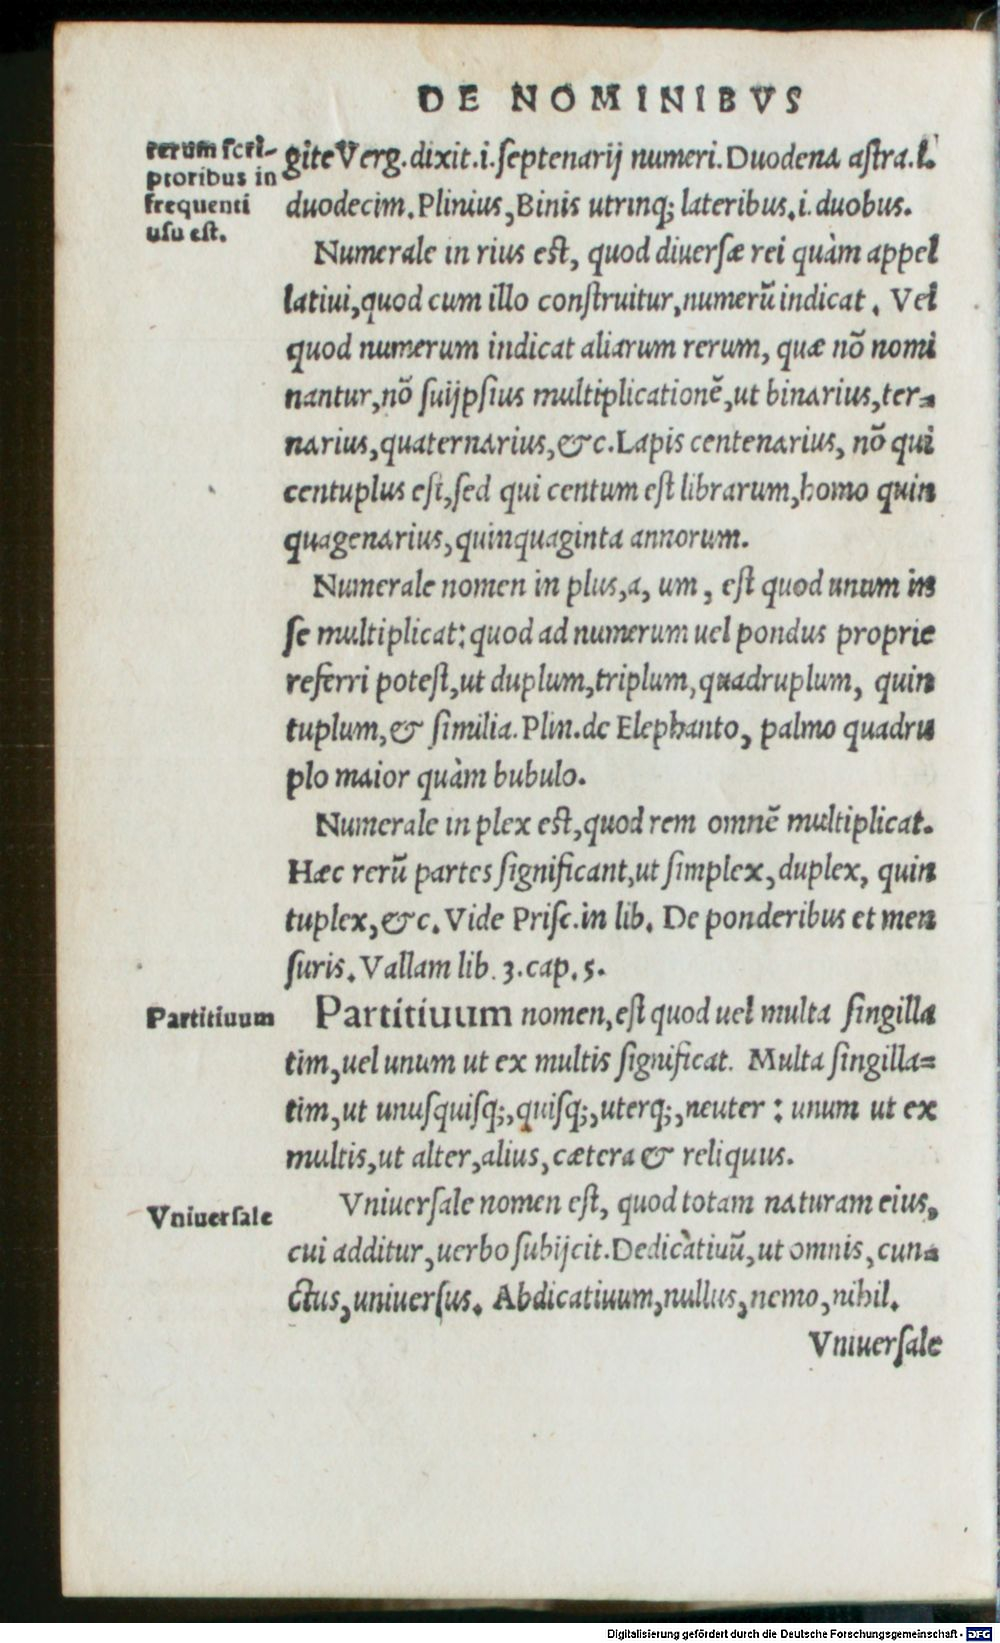 DE NOMINIBVS
rerum scri-
ptoribus in
frequenti
usu est.
gite Verg. dixit.i. septenarij numeri. Duodena astra.i.
duodecim. Plinius, Binis utrinq; lateribus.i. duobus.
Numerale in rius est, quod diuersæ rei quàm appel
latiui, quod cum illo construitur, numerũ indicat. Vel
quod numerum indicat aliarum rerum, quæ nõ nomi
nantur, nõ suijpsius multiplicationẽ, ut binarius, ter-
narius, quaternarius, &c. Lapis centenarius, nõ qui
centuplus est, sed qui centum est librarum, homo quin
quagenarius, quinquaginta annorum.
Numerale nomen in plus, a, um, est quod unum in
se multiplicat: quod ad numerum uel pondus proprie
referri potest, ut duplum, triplum, quadruplum, quin
tuplum, & similia. Plin. de Elephanto, palmo quadru
plo maior quàm bubulo.
Numerale in plex est, quod rem omnẽ multiplicat.
Hæc rerũ partes significant, ut simplex, duplex, quin
tuplex, &c. Vide Prisc. in lib. De ponderibus et men
suris. Vallam lib. 3. cap. 5.
Partitiuum
Partitiuum nomen, est quod uel multa singilla
tim, uel unum ut ex multis significat. Multa singilla=
tim, ut unusquisq;, quisq;, uterq;, neuter: unum ut ex
multis, ut alter, alius, cætera & reliquus.
Vniuersale
Vniuersale nomen est, quod totam naturam eius,
cui additur, uerbo subijcit. Dedicatiuũ, ut omnis, cun=
ctus, uniuersus. Abdicatiuum, nullus, nemo, nihil.
Vniuersale
Digitalisierung gefördert durch die Deutsche Forschungsgemeinschaft - DFG